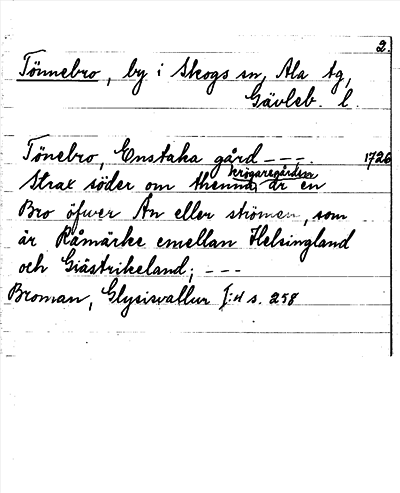 2.
Tönnebro, by i Skogs sn, Ala tg,
Gävleb. l.
Tönebro, Enstaka gård - - -. 1726
Strax söder om thenna krögaregården är en
Bro öfwer Ån eller strömen, som
är Råmärke emellan Helsingland
och Giästrikeland; - - -
Broman, Glysisvallur I:d s. 258